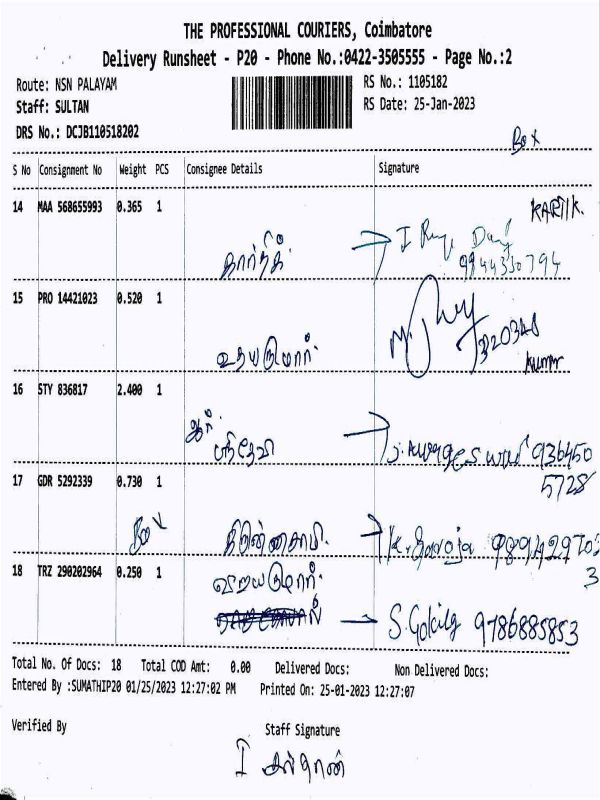 THE PROFESSIONAL COURIERS, Coimbatore
Delivery Runsheet - P20 - Phone No.:0422-3505555 - Page No.:2
Route: NSN PALAYAM
RS No.: 1105182
Staff: SULTAN
RS Date: 25-Jan-2023
DRS No.: DCJB110518202
Box
S No Consignment No Weight PCS Consignee Details Signature
14 MAA 568655993 0.365 1
KARTIK.
கார்த்திக்
9944330794
15 PRO 14421023 0.520 1
உதயகுமார்.
Kumar
16 STY 836817 2.400 1
ஆர்.
ஸ்ரீதேவி
936450
5728
17 GDR 5292339 0.730 1
K. Saroja
18 TRZ 290202964 0.250 1
விஜயகுமார்.
9786885853
Total No. Of Docs: 18 Total COD Amt: 0.00 Delivered Docs: Non Delivered Docs:
Entered By :SUMATHIP20 01/25/2023 12:27:02 PM Printed On: 25-01-2023 12:27:07
Verified By
Staff Signature
சுல்தான்